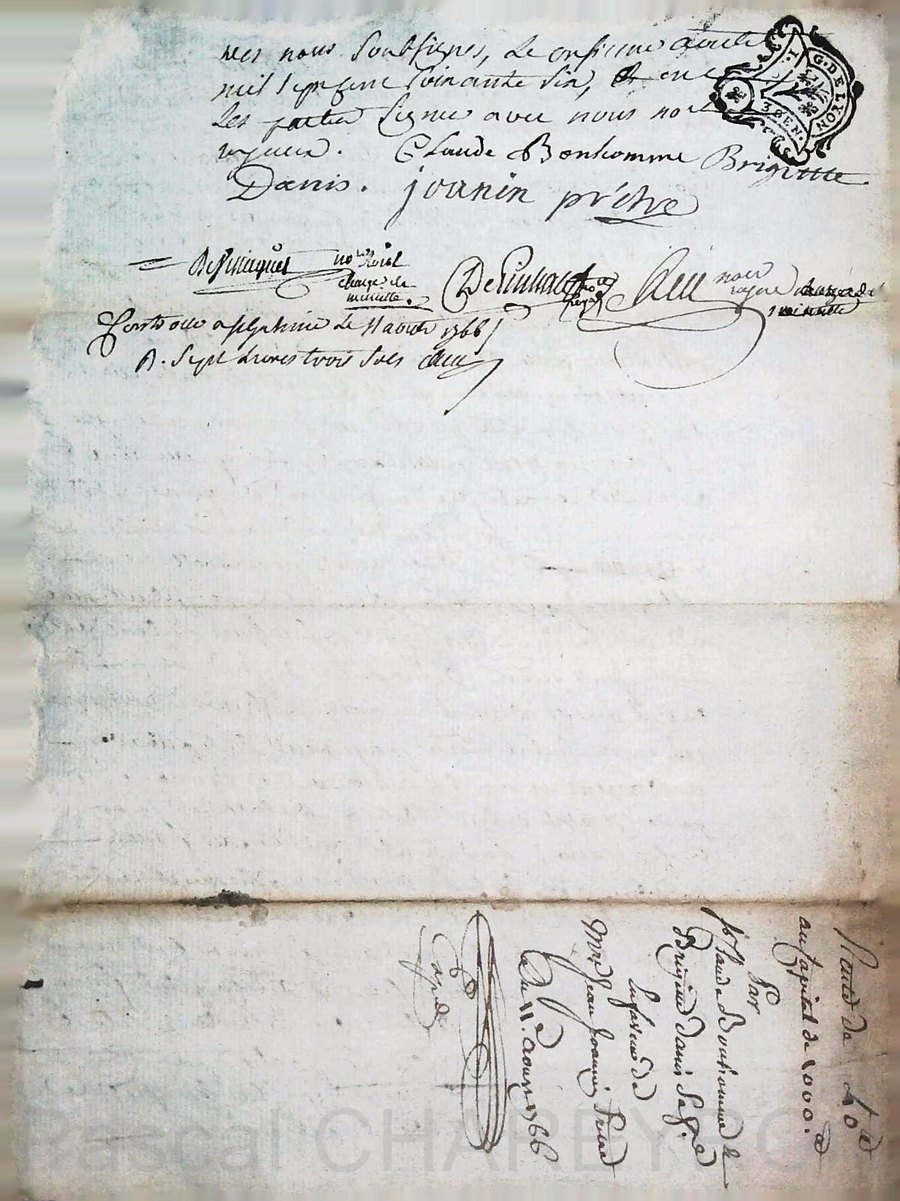 nées nous soubsignés, Le onzieme aoust
mil sept cent soixante six, Et ont
Les parties Signé avec nous no
royaux. Claude Bonhomme Brigitte
Danis. joanin prêtre
nore Roial
chargé de
minutte.
notre
royal
noire
royal chargé de
minutte
Controllé a le 11 aoust 1766
R. Sept Livres trois sols
G. DE LYON
3 DEN.
Rente de 40 d
au capital de 1000. d
Par
Sr Claude Bonhomme &
Brigitte danis Sa fe. a
La faveur de
Mre Jean Joanin Prêtre
Du 11e. aoust 1766
Expedié
Pascal CHAREYRON